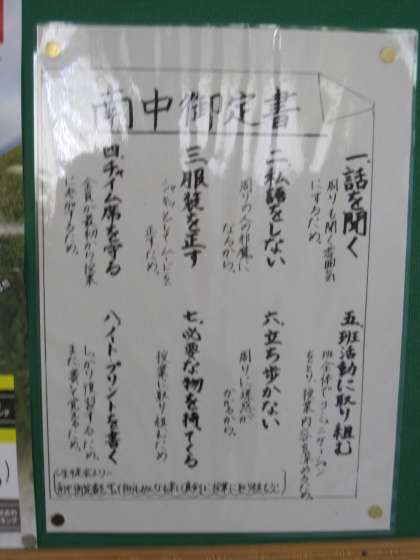 南中御定書
一、話を聞く
周りも聞く雰囲気
にするため。
二、私語をしない
周りの人の邪魔に
なるから。
三、服装を正す
正すため。
四、チャイム席を守る
全員が最初から授業
に参加するため。
五、班活動に取り組む
班全体でコミュニケーション
をとり、授業内容を深めるため。
六、立ち歩かない
周りに迷惑が
かかるから。
七、必要な物を持ってくる
授業に取り組むため
八、ノート・プリントを書く
しっかり復習するため。
また書いて覚えるため。